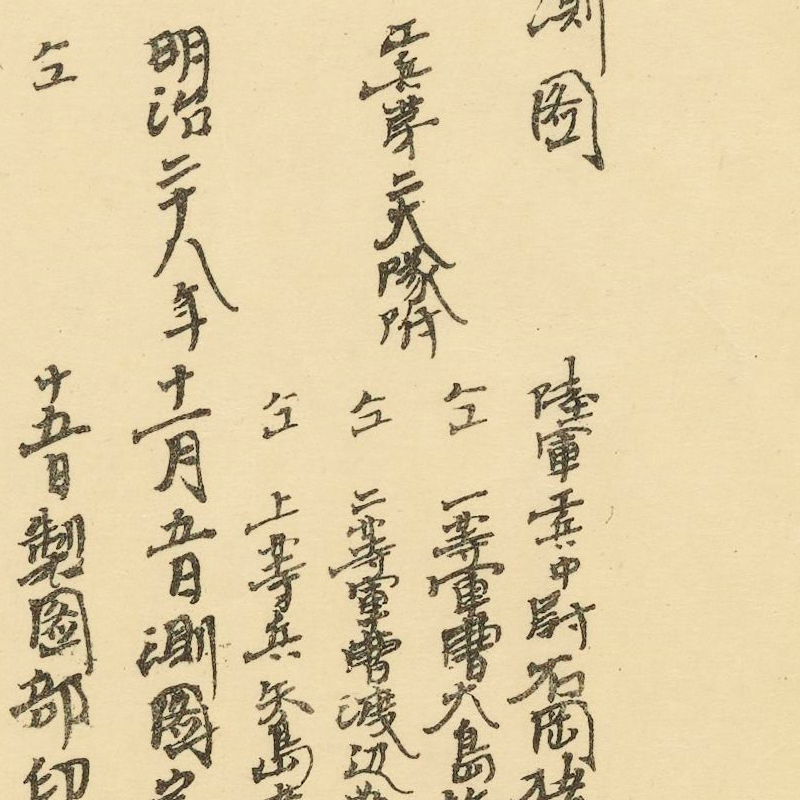 測図
陸軍工兵中尉石岡
工兵第二大隊附
仝 一等軍曹大島
仝 二等軍曹渡辺
仝 上等兵矢島
明治二十八年十一月五日測図
仝 十五日製図部印